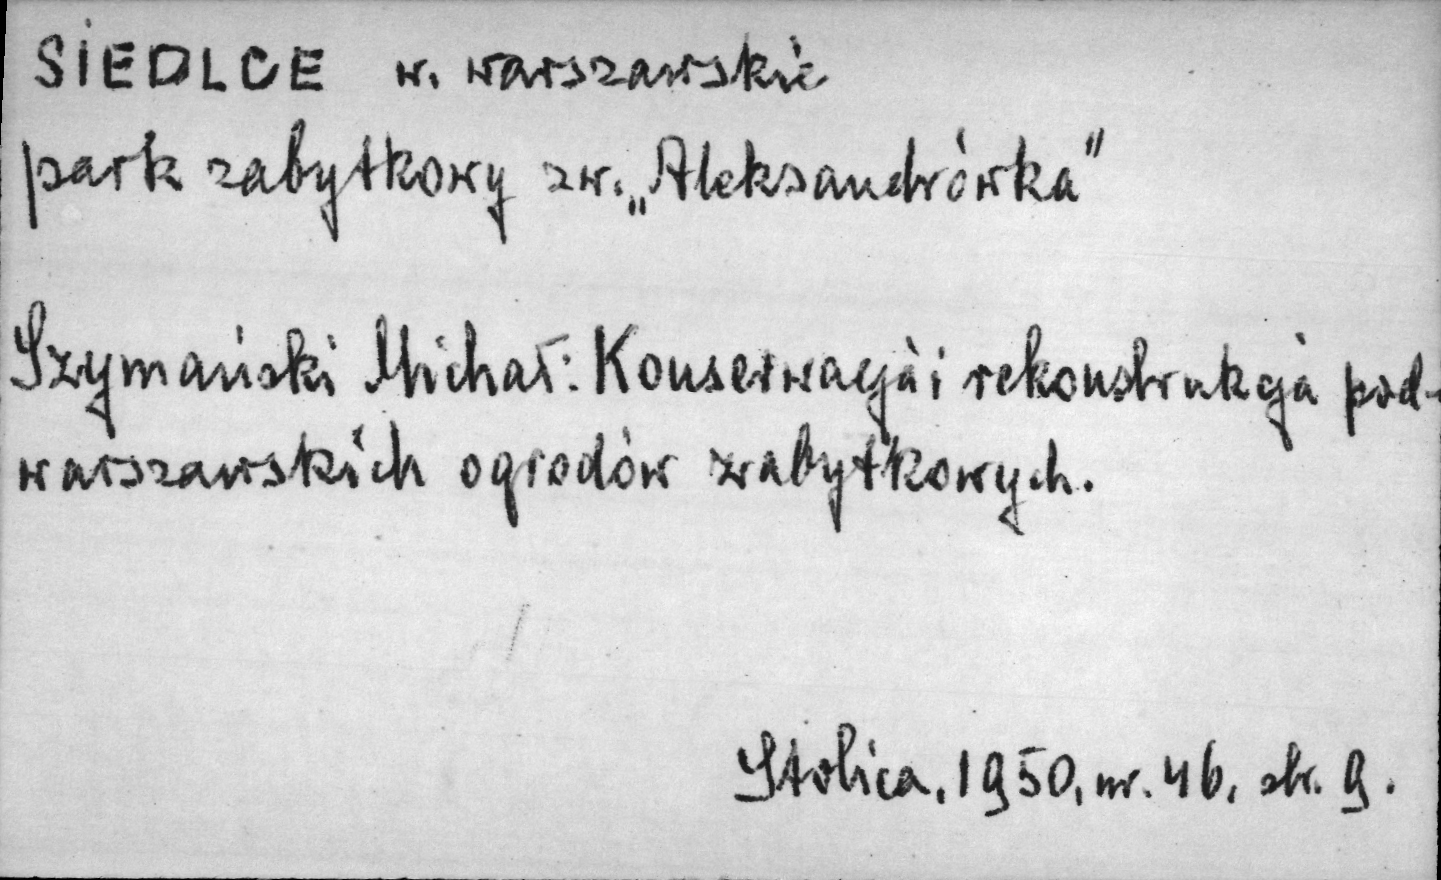 SIEDLCE w. warszawskie
park zabytkowy zw. „Aleksandrówka”
Szymański Michał: Konserwacja i rekonstrukcja pod-
warszawskich ogrodów zabytkowych.
Stolica, 1950, nr. 46, str. 9.